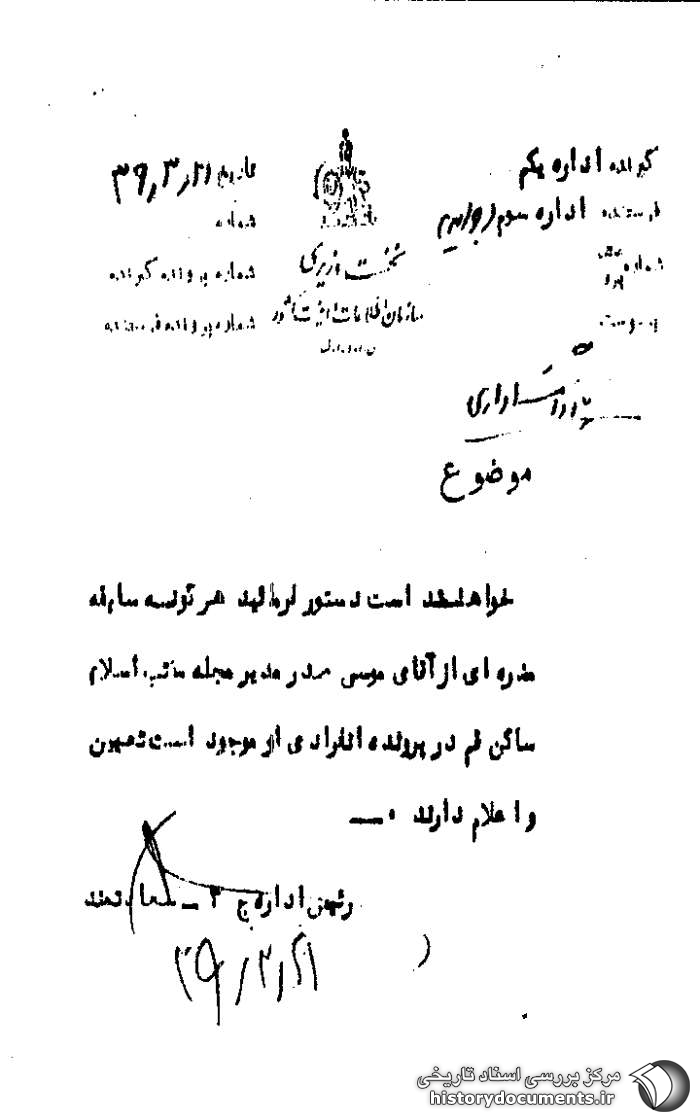 گیرنده اداره یکم
فرستنده اداره سوم
شماره
پیوست
تاریخ ۳۹٫۳٫۲۱
شماره
شماره پرونده گیرنده
شماره پرونده فرستنده
نخست وزیری
سازمان اطلاعات و امنیت کشور
اداری
موضوع
خواهشمند است دستور فرمائید هر گونه سابقه
مضره ای از آقای موسی صدر مدیر مجله مکتب اسلام
ساکن قم در پرونده انفرادی او موجود است تعیین
و اعلام دارند ۰ــ
رئیس اداره ج ۳ ــ سعادتمند
۳۹/۳/۲۱
مرکز بررسی اسناد تاریخی
historydocuments.ir